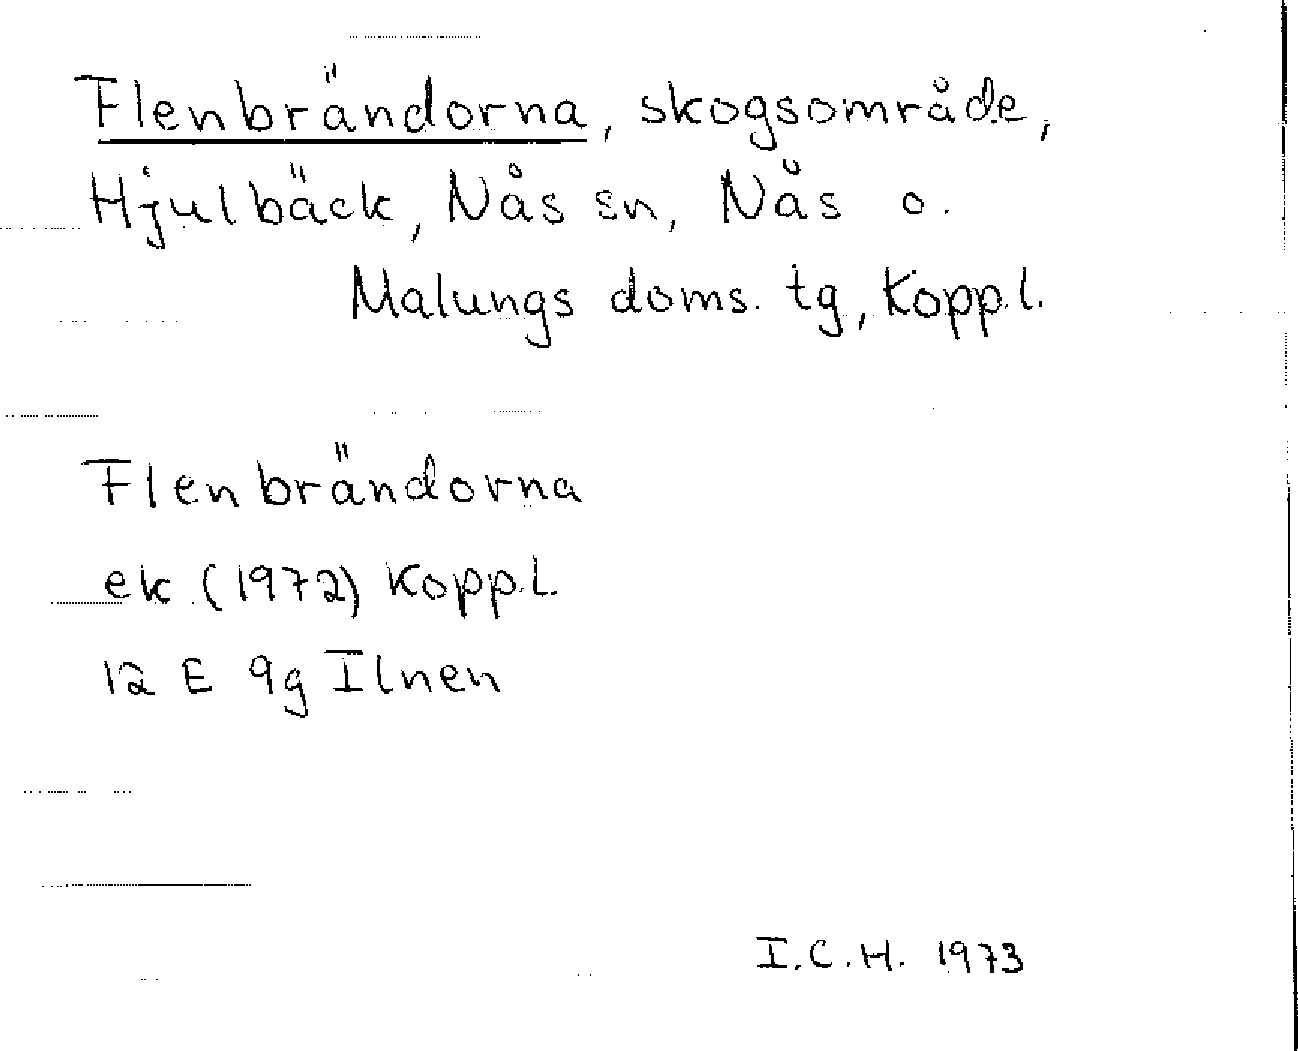 Flenbrändorna, skogsområde,
Hjulbäck, Nås sn, Nås o.
Malungs doms. tg, Koppl.
Flenbrändorna
ek (1972) Koppl.
12 E 9g Ilnen
I.C.H. 1973